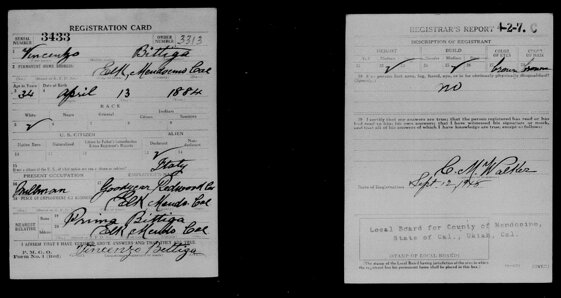 REGISTRATION CARD
SERIAL NUMBER 3433 ORDER NUMBER 3313
Vincenzo Bittiga
PERMANENT HOME ADDRESS:
Elk, Mendocino Cal
Age in Years Date of Birth
34 April 13 1884
RACE
White Negro Oriental Indian
✓
U. S. CITIZEN ALIEN
Native Born Naturalized Citizen by Father's Naturalization Before Registrant's Majority Declarant Non-declarant
✓
Italy
PRESENT OCCUPATION EMPLOYER'S NAME
Goodyear Redwood Co
PLACE OF EMPLOYMENT OR BUSINESS:
Elk Mendo Cal
NEAREST RELATIVE
Name Prima Bittiga
Address Elk Mendo Cal
I AFFIRM THAT I HAVE VERIFIED ABOVE ANSWERS AND THAT THEY ARE TRUE
P. M. G. O.
Form No. 1 (Red)
Vincenzo Bittiga
REGISTRAR'S REPORT 4-2-7. C
DESCRIPTION OF REGISTRANT
HEIGHT BUILD COLOR OF EYES COLOR OF HAIR
Tall Medium Short Slender Medium Stout
✓ ✓ brown brown
Has person lost arm, leg, hand, eye, or is he obviously physically disqualified?
no
I certify that my answers are true; that the person registered has read or has had read to him his own answers; that I have witnessed his signature or mark, and that all of his answers of which I have knowledge are true, except as follows:
C. M. Walker
Date of Registration Sept. 12 1918
Local Board for County of Mendocino,
State of Cal., Ukiah, Cal.
(STAMP OF LOCAL BOARD)
(The stamp of the Local Board having jurisdiction of the area in which the registrant has his permanent home shall be placed in this box.)
(OVER)